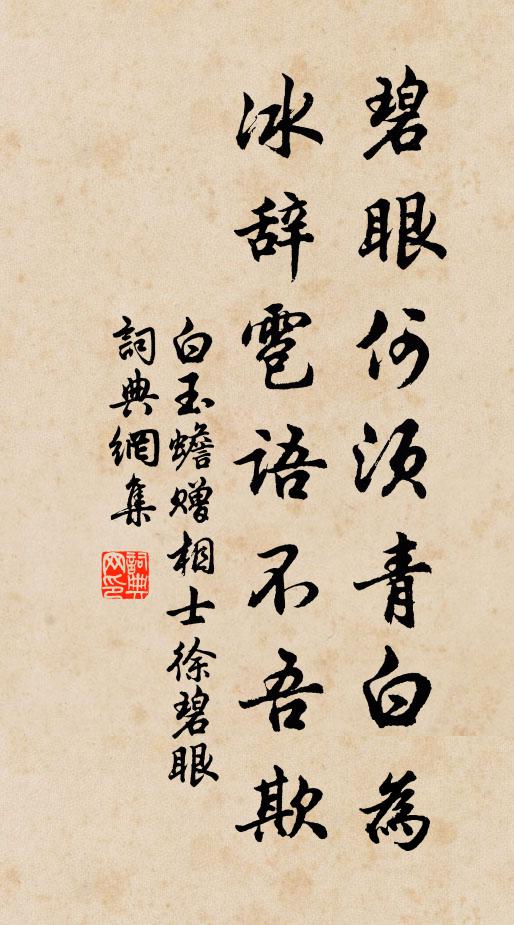 碧眼何须青白為
冰辞雹語不吾欺
白玉蟾赠相士徐碧眼
詞典網集
詞典
网印